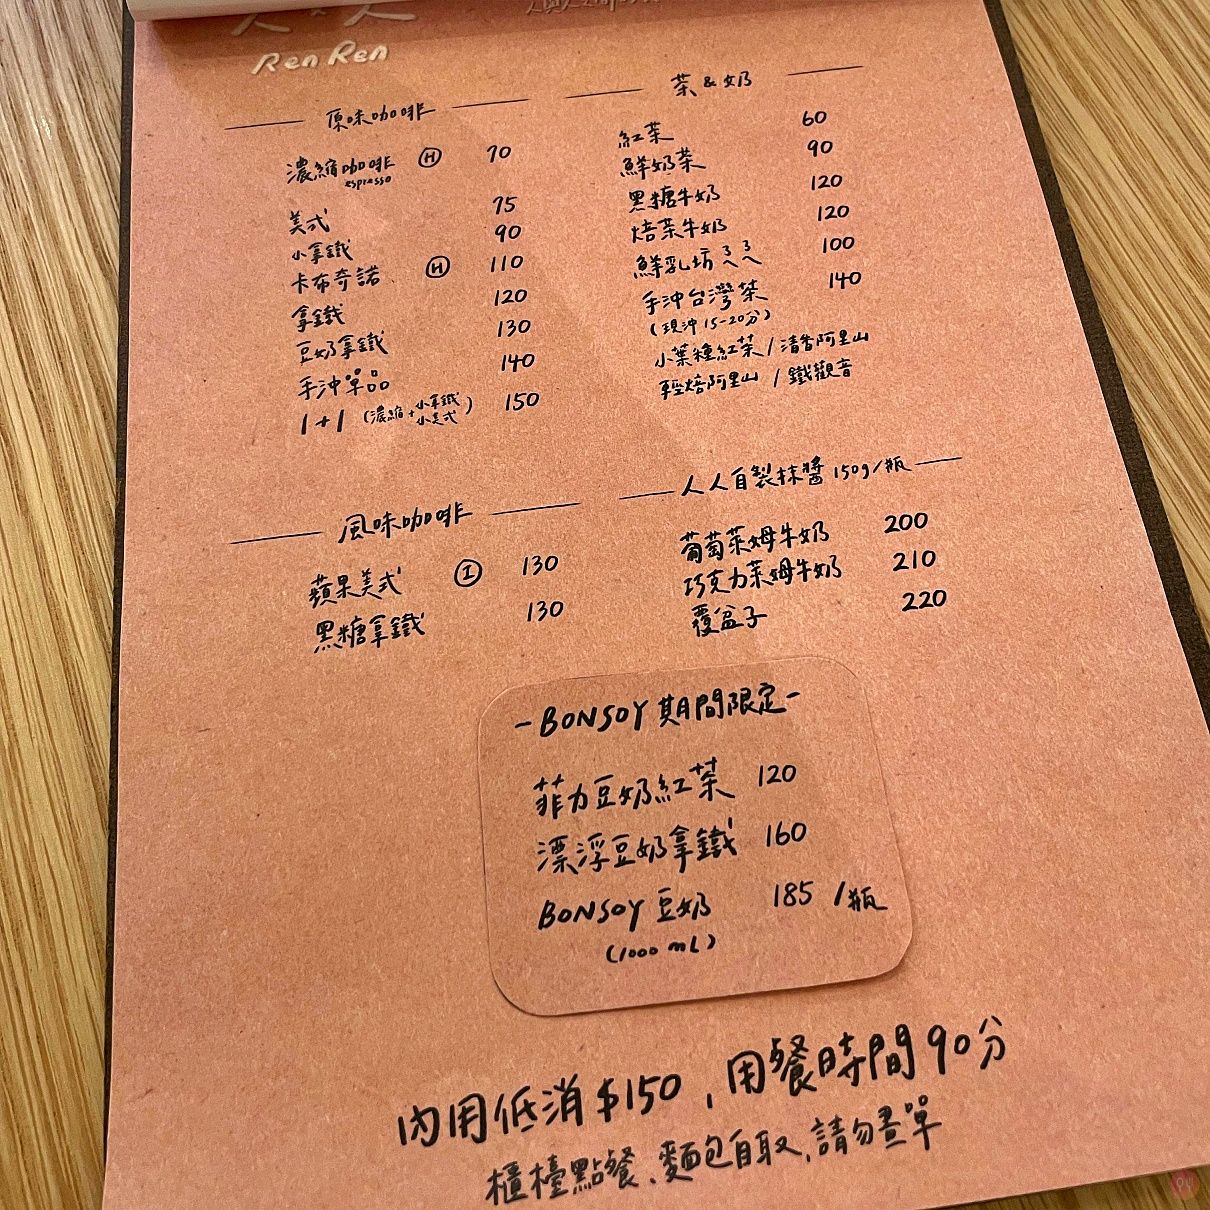 人人
Ren Ren
原味咖啡
濃縮咖啡 Ⓗ 70
espresso
美式 75
小拿鐵 90
卡布奇諾 Ⓗ 110
拿鐵 120
豆奶拿鐵 130
手沖單品 140
1+1 (濃縮+小拿鐵 小美式) 150
風味咖啡
蘋果美式 Ⓘ 130
黑糖拿鐵 130
茶&奶
紅茶 60
鮮奶茶 90
黑糖牛奶 120
焙茶牛奶 120
鮮乳坊ろろ 100
手沖台灣茶 140
(現沖15-20分)
小葉種紅茶/清香阿里山
輕焙阿里山/鐵觀音
人人自製抹醬150g/瓶
葡萄萊姆牛奶 200
巧克力萊姆牛奶 210
覆盆子 220
-BONSOY期間限定-
菲力豆奶紅茶 120
漂浮豆奶拿鐵 160
BONSOY豆奶 185 /瓶
(1000 mL)
內用低消$150,用餐時間90分
櫃檯點餐、麵包自取,請勿畫單